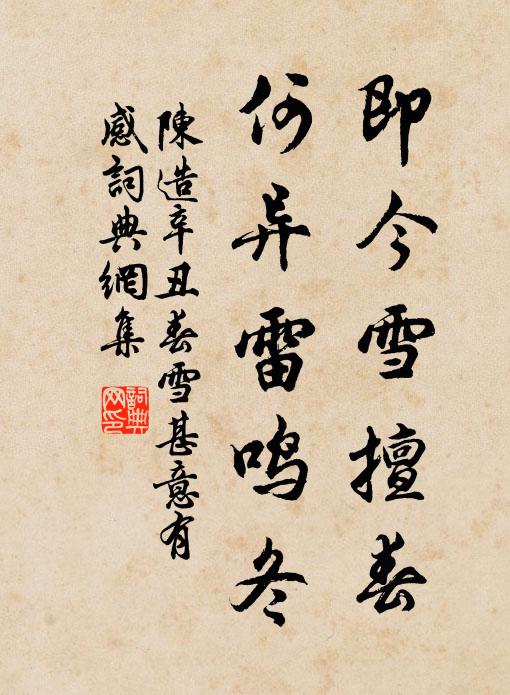 即今雪擅春
何异雷鸣冬
陳造辛丑春雪甚意有
感詞典網集
詞典
网印